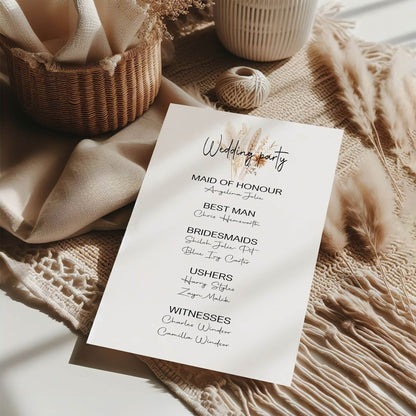 Wedding party
MAID OF HONOUR
Angelina Jolie
BEST MAN
Chris Hemsworth
BRIDESMAIDS
Shiloh Jolie-Pit
Blue Ivy Carter
USHERS
Harry Styles
Zayn Malik
WITNESSES
Charles Windsor
Camilla Windsor